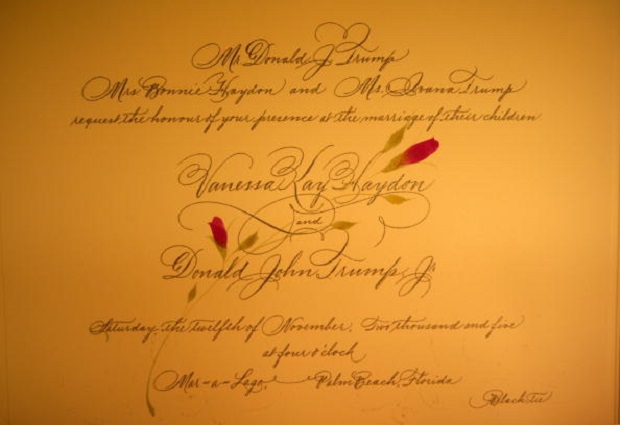 Mr Donald J. Trump
Mrs Bonnie Haydon and Ms. Ivana Trump
request the honour of your presence at the marriage of their children
Vanessa Kay Haydon
and
Donald John Trump, Jr
Saturday, the twelfth of November, Two thousand and five
at four o'clock
Mar-a-Lago Palm Beach, Florida
Black tie